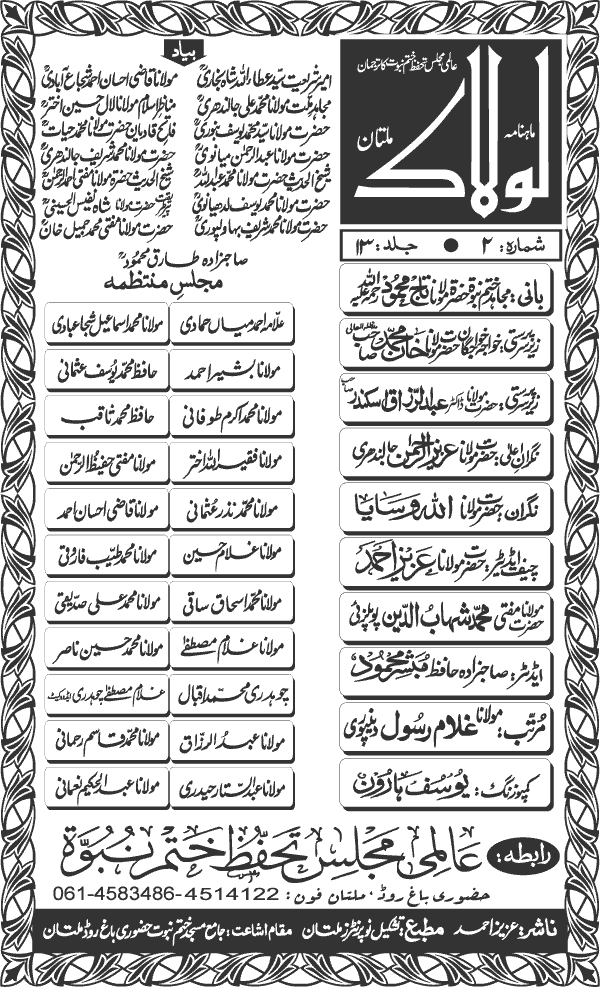 عالمی مجلس تحفظ ختم نبوت کا ترجمان
ماہنامہ
لولاک
ملتان
شمارہ: ۲ ● جلد: ۱۳
بانی: مجاہد ختم نبوۃ حضرۃ مولانا تاج محمود رحمۃ اللہ علیہ
زیر سرپرستی: خواجہ خواجگان حضرت مولانا خان محمد صاحب مدظلہ العالی
زیر سرپرستی: حضرت مولانا ڈاکٹر عبدالرزاق اسکندر صاحب
نگران اعلیٰ: حضرت مولانا عزیز الرحمن جالندھری
نگران: حضرت مولانا اللہ وسایا
چیف ایڈیٹر: حضرت مولانا عزیز احمد
حضرت مولانا مفتی محمد شہاب الدین پوپلزئی
ایڈیٹر: صاحبزادہ حافظ مبشر محمود
مرتب: مولانا غلام رسول دینپوری
کمپوزنگ: یوسف ہارون
بیاد
امیر شریعت سید عطاء اللہ شاہ بخاریؒ مولانا قاضی احسان احمد شجاع آبادیؒ
مجاہد ملت مولانا محمد علی جالندھریؒ مناظر اسلام مولانا لال حسین اخترؒ
حضرت مولانا سید محمد یوسف بنوریؒ فاتح قادیان حضرت مولانا محمد حیاتؒ
حضرت مولانا عبدالرحمن میانویؒ حضرت مولانا محمد شریف جالندھریؒ
شیخ الحدیث حضرت مولانا محمد عبداللہؒ شیخ الحدیث حضرۃ مولانا مفتی احمد الرحمنؒ
حضرت مولانا محمد یوسف لدھیانویؒ حضرت مولانا شاہ نفیس الحسینیؒ
حضرت مولانا محمد شریف بہاولپوریؒ حضرت مولانا مفتی محمد جمیل خانؒ
صاحبزادہ طارق محمودؒ
مجلس منتظمہ
علامہ احمد میاں حمادی مولانا محمد اسماعیل شجاعبادی
مولانا بشیر احمد حافظ محمد یوسف عثمانی
مولانا محمد اکرم طوفانی حافظ محمد ثاقب
مولانا فقیر اللہ اختر مولانا مفتی حفیظ الرحمٰن
مولانا محمد نذر عثمانی مولانا قاضی احسان احمد
مولانا غلام حسین مولانا محمد طیب فاروقی
مولانا محمد اسحاق ساقی مولانا محمد علی صدیقی
مولانا غلام مصطفےٰ مولانا محمد حسین ناصر
چوہدری محمد اقبال غلام مصطفےٰ چوہدری ایڈووکیٹ
مولانا عبدالرزاق مولانا محمد قاسم رحمانی
مولانا عبدالستار حیدری مولانا عبدالحکیم نعمانی
رابطہ: عالمی مجلس تحفظ ختم نبوۃ
حضوری باغ روڈ، ملتان فون: 061-4583486-4514122
ناشر: عزیز احمد مطبع: تشکیل نو پرنٹرز ملتان مقام اشاعت: جامع مسجد ختم نبوت حضوری باغ روڈ ملتان